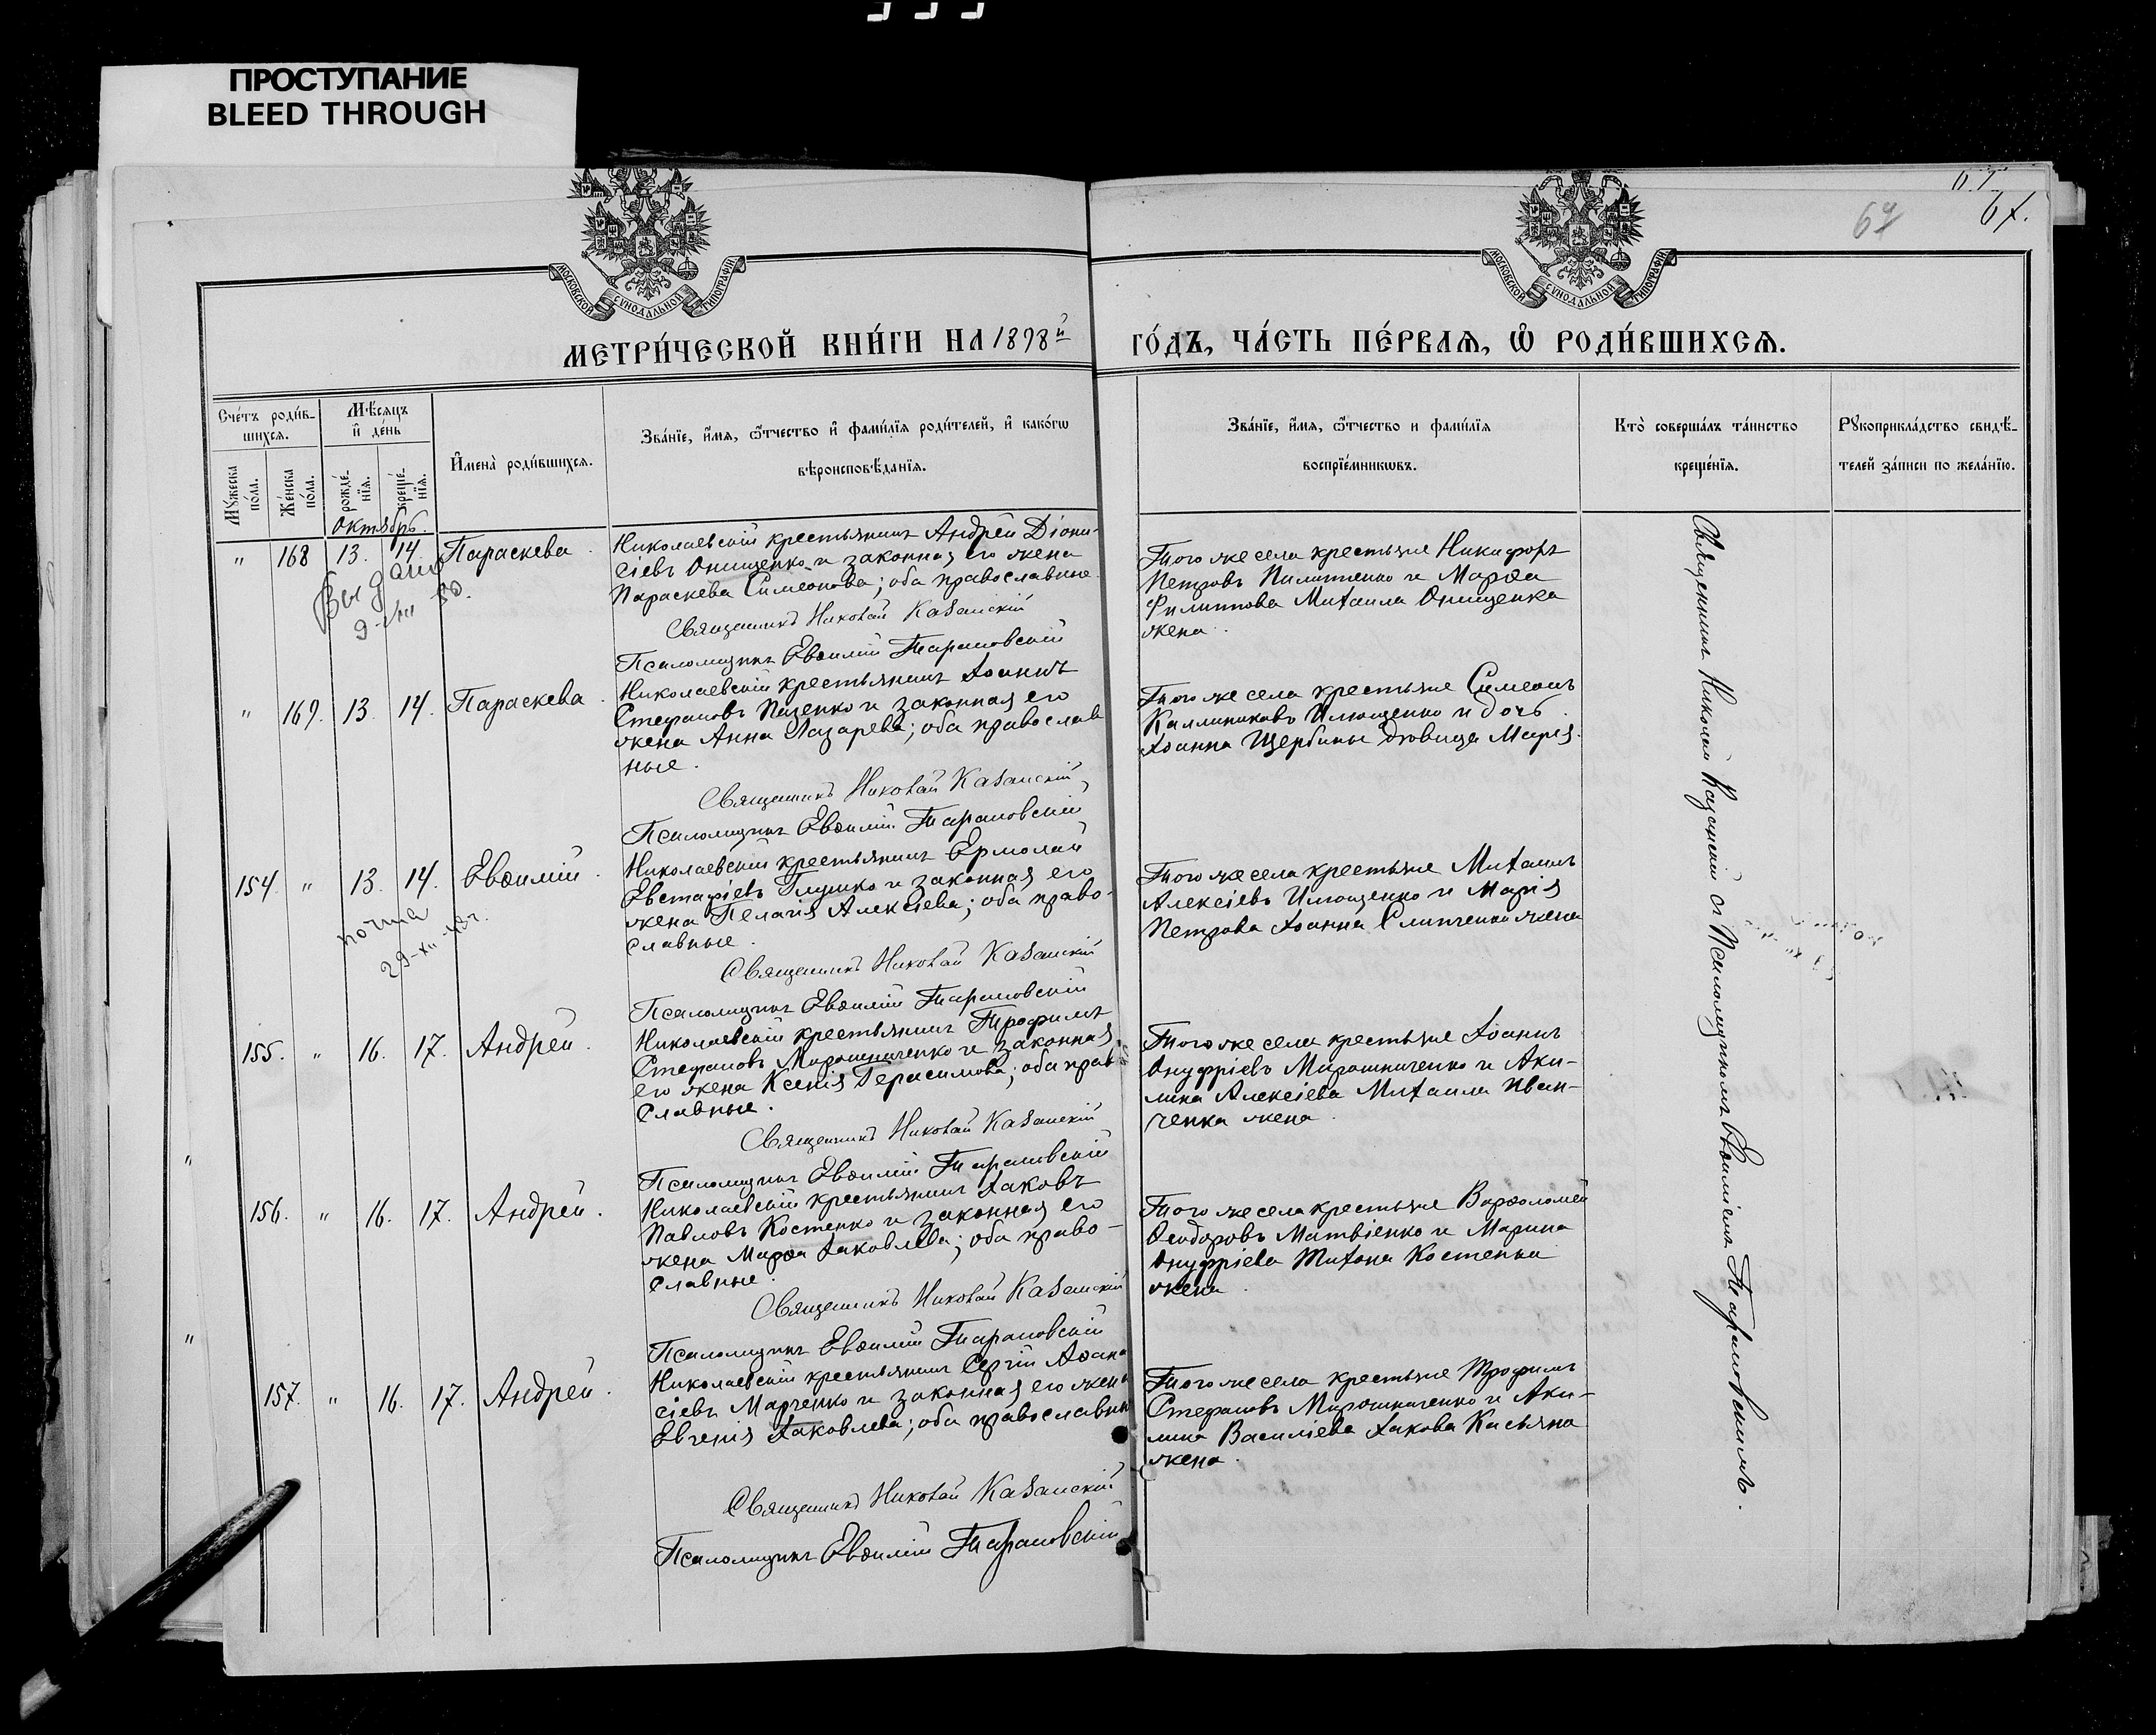 ПРОСТУПАНИЕ
BLEED THROUGH
67.
МОСКОВСКОЙ СѴНОДАЛЬНОЙ ТИПОГРАФІИ
МОСКОВСКОЙ СѴНОДАЛЬНОЙ ТИПОГРАФІИ
МЕТРИ́ЧЕСКОЙ КНИ́ГИ НА 1898й ГО́ДЪ, ЧА́СТЬ ПЕ́РВАѦ, Ѡ҆ РОДИ́ВШИХСѦ.
Сче́тъ роди́в-
шихсѧ.
Мꙋ́жеска по́ла.
Же́нска по́ла.
Мѣ́сѧцъ
и҆ де́нь
рожде́-
нїѧ.
креще́-
нїѧ.
И҆мена̀ роди́вшихсѧ.
Зва́нїе, и҆́мѧ, ѻ҆́тчество и҆ фами́лїѧ роди́телей, и҆ како́гѡ
вѣроисповѣ́данїѧ.
Зва́нїе, и҆́мѧ, ѻ҆́тчество и фами́лїѧ
воспрїе́мникѡвъ.
Кто̀ соверша́лъ та́инство
креще́нїѧ.
Рꙋкоприкла́дство свидѣ́-
телей за́писи по жела́нїю.
Октябрь.
" 168 13. 14. Параскева.
Выдано
9-
Николаевскій крестьянинъ Андрей Діони-
сіевъ Онищенко и законная его жена
Параскева Симеонова; оба православные.
Священникъ Николай Казанскій
Псаломщикъ Евѳимій Тарановскій
Того же села крестьяне Никифоръ
Петровъ Пилипенко и Марѳа
Филиппова Михаила Онищенка
жена.
" 169. 13. 14. Параскева.
Николаевскій крестьянинъ Іоаннъ
Стефановъ Паценко и законная его
жена Анна Лазарева; оба православ
ные.
Священникъ Николай Казанскій
Псаломщикъ Евѳимій Тарановскій
Того же села крестьяне Симеонъ
Каллиниковъ Илющенко и дочь
Іоанна Щербины дѣвица Марія.
154. " 13. 14. Евѳимій.
почта
29-XII-48г.
Николаевскій крестьянинъ Ермолай
Евстафіевъ Глушко и законная его
жена Пелагія Алексіева; оба право-
славные.
Священникъ Николай Казанскій
Псаломщикъ Евѳимій Тарановскій
Того же села крестьяне Михаилъ
Алексіевъ Илющенко и Марія
Петрова Іоанна Слипченка жена
155. " 16. 17. Андрей.
Николаевскій крестьянинъ Трофимъ
Стефановъ Мирошниченко и законная
его жена Ксенія Герасимова; оба прав
славные.
Священникъ Николай Казанскій
Псаломщикъ Евѳимій Тарановскій
Того же села крестьяне Іоаннъ
Онуфріевъ Мирошниченко и Аки-
лина Алексіева Михаила Иван-
ченка жена.
156. " 16. 17. Андрей.
Николаевскій крестьянинъ Іаковъ
Павловъ Костенко и законная его
жена Марѳа Іаковлева; оба право-
славные.
Священникъ Николай Казанскій
Псаломщикъ Евѳимій Тарановскій
Того же села крестьяне Варѳоломей
Ѳеодоровъ Матвіенко и Марина
Онуфріева Тихона Костенка
жена.
157. " 16. 17. Андрей.
Николаевскій крестьянинъ Сергій Аѳана
сіевъ Марченко и законная его жена
Евгенія Іаковлева; оба православны
Священникъ Николай Казанскій
Псаломщикъ Евѳимій Тарановскій
Того же села крестьяне Трофимъ
Стефановъ Мирошниченко и Аки-
лина Василіева Іакова Касьяна
жена.
Священникъ Николай Казанскій съ Псаломщикомъ Евѳиміемъ Тарановскимъ.